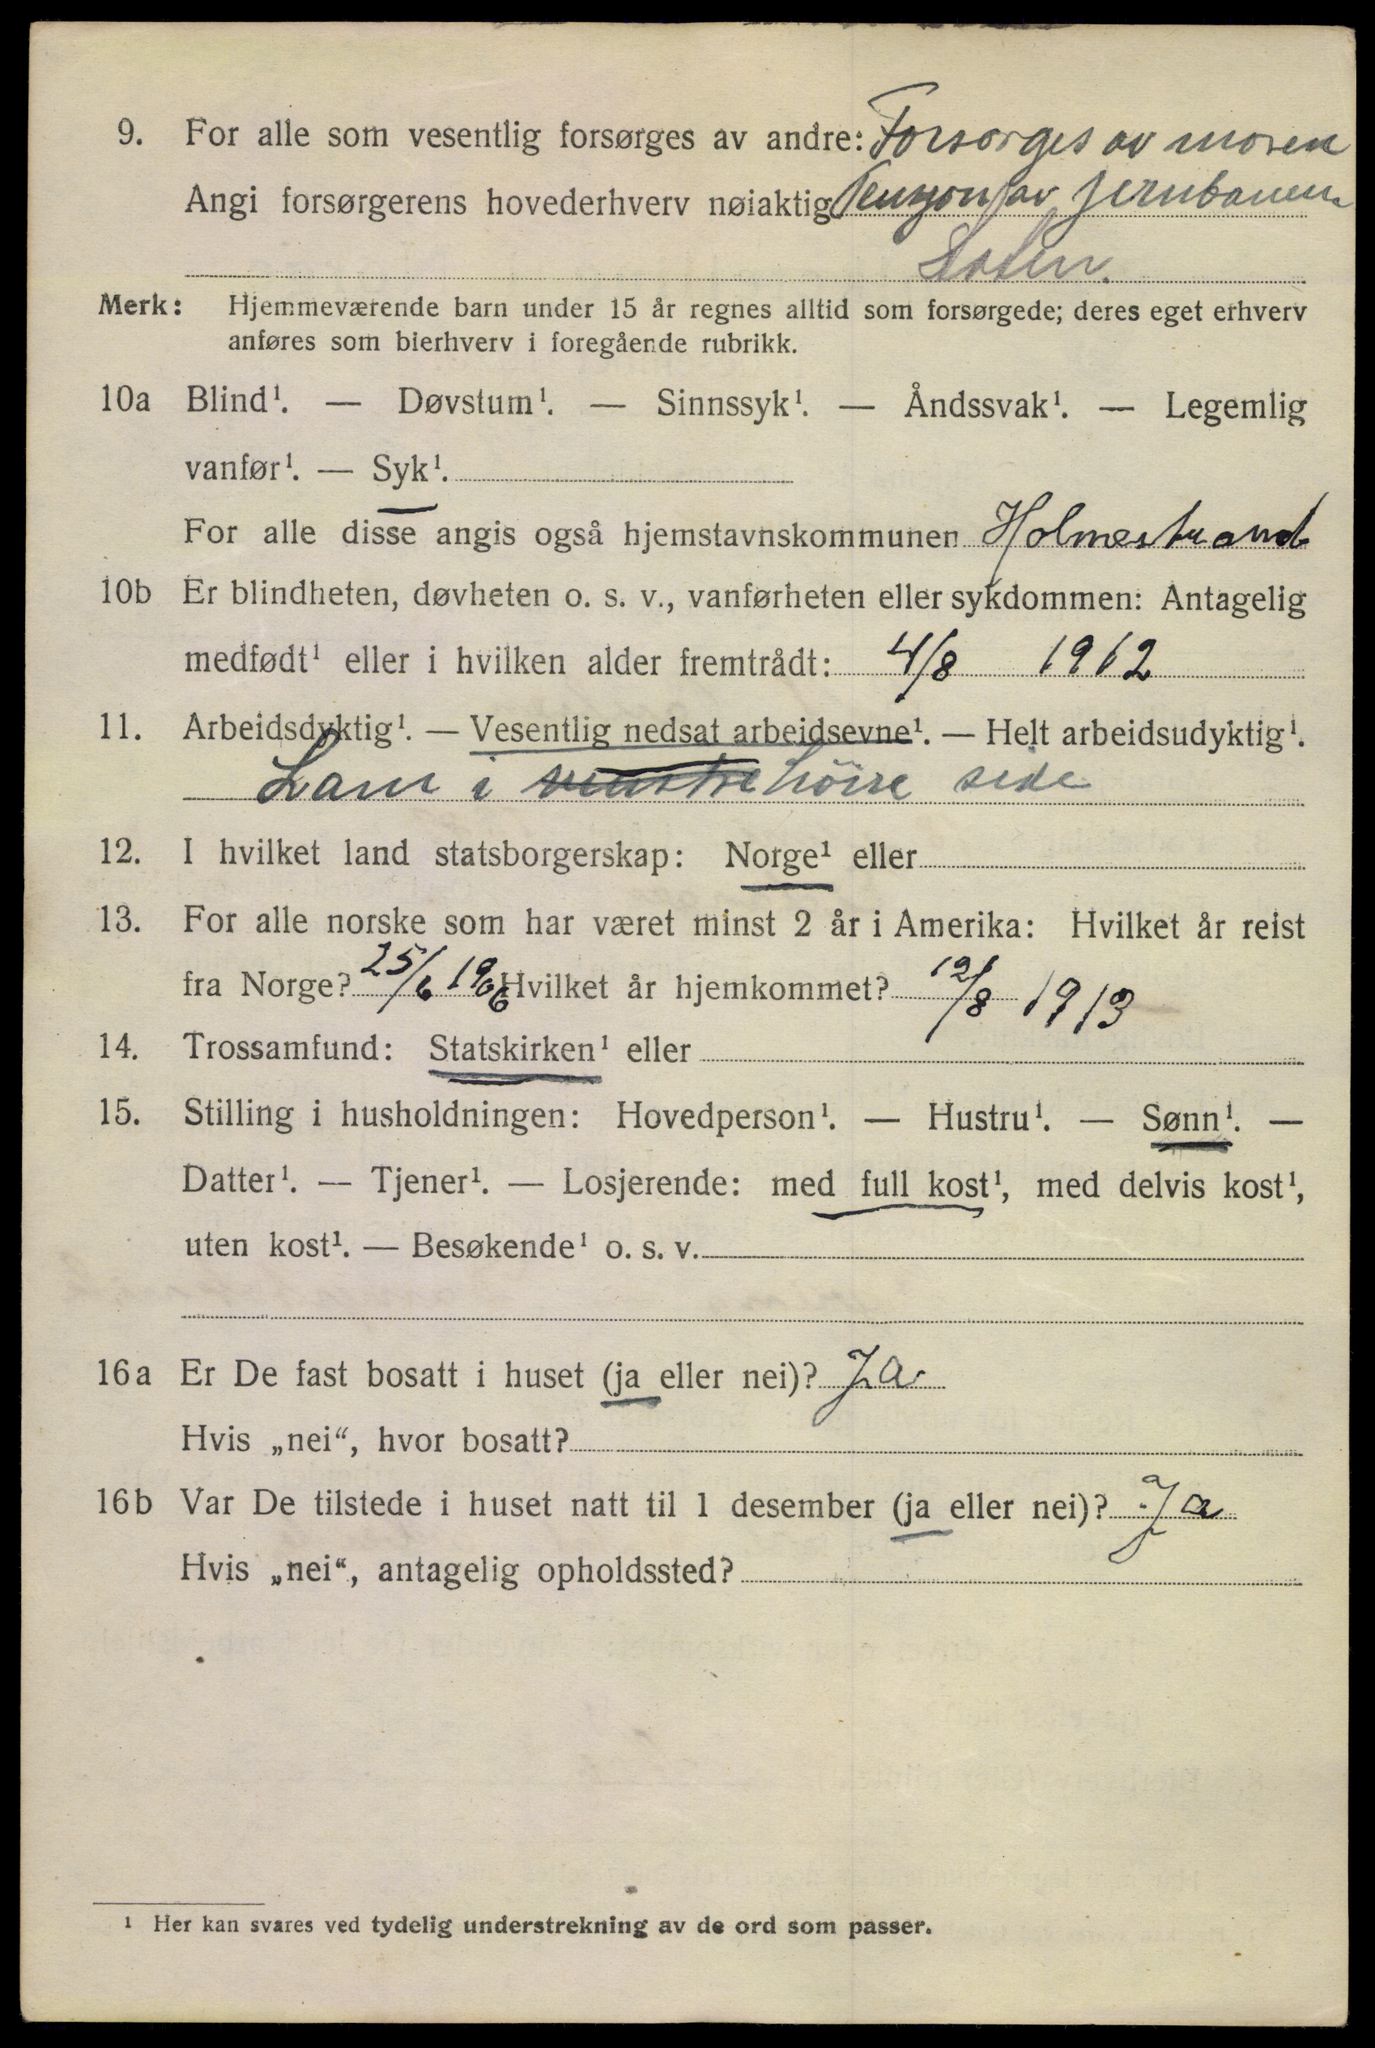 9. For alle som vesentlig forsørges av andre: Forsorges av moren
Angi forsørgerens hovederhverv nøiaktig Pensjon av jernbanen
Merk: Hjemmeværende barn under 15 år regnes alltid som forsørgede; deres eget erhverv
anføres som bierhverv i foregående rubrikk.
10a Blind¹. — Døvstum¹. — Sinnssyk¹. — Åndssvak¹. — Legemlig
vanfør¹. — Syk¹.
For alle disse angis også hjemstavnskommunen Holmestrand
10b Er blindheten, døvheten o. s. v., vanførheten eller sykdommen: Antagelig
medfødt¹ eller i hvilken alder fremtrådt: 4/8 1912
11. Arbeidsdyktig¹. — Vesentlig nedsat arbeidsevne¹. — Helt arbeidsudyktig¹.
Lam i venstre høire side
12. I hvilket land statsborgerskap: Norge¹ eller
13. For alle norske som har været minst 2 år i Amerika: Hvilket år reist
fra Norge? 25/6 1906 Hvilket år hjemkommet? 12/8 1913
14. Trossamfund: Statskirken¹ eller
15. Stilling i husholdningen: Hovedperson¹. — Hustru¹. — Sønn¹. —
Datter¹. — Tjener¹. — Losjerende: med full kost¹, med delvis kost¹,
uten kost¹. — Besøkende¹ o. s. v.
16a Er De fast bosatt i huset (ja eller nei)? Ja
Hvis „nei“, hvor bosatt?
16b Var De tilstede i huset natt til 1 desember (ja eller nei)? Ja
Hvis „nei“, antagelig opholdssted?
¹ Her kan svares ved tydelig understrekning av de ord som passer.